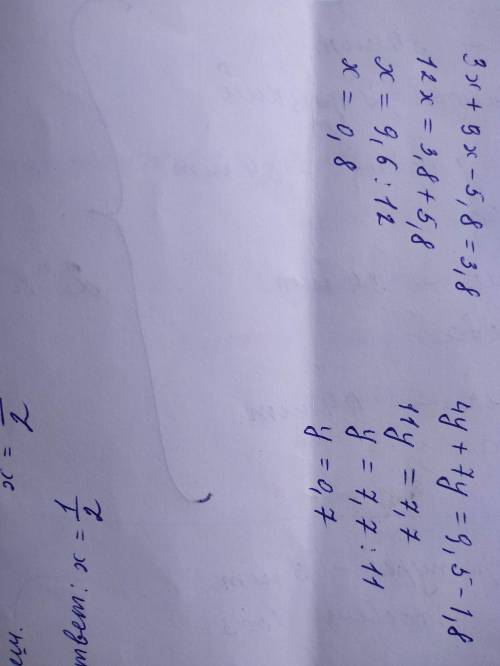 3x + 9x - 5,8 = 3,8
12x = 3,8 + 5,8
x = 9,6 : 12
x = 0,8
4y + 7y = 9,5 - 1,8
11y = 7,7
y = 7,7 : 11
y = 0,7
x = 1/2
твет: x = 1/2